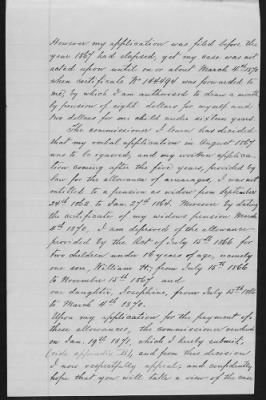 However my application was filed before the
year 1867 had elapsed, yet my case was not
acted upon until on or about March 4th 1870
when certificate No 144494 was forwarded to
me, by which I am authorized to draw a month
ly pension of eight dollars for myself and
two dollars for one child under sixteen years.
The commissioner I learn has decided
that my verbal application in August 1867
was to be ignored, and my written applica-
tion coming after the five years, provided by
law for the allowance of arrearages, I was not
entitled to a pension as widow from September
24th 1862 to Jan. 27th 1864. Moreover by dating
the certificate of my widows pension March
4th 1870, I am deprived of the allowance
provided by the Act of July 15th 1866 for
two children under 16 years of age, namely
one son, William H., from July 15th 1866
to November 15th 1867 and
one daughter, Josephine, from July 15th 1866
to March 4th 1870.
Upon my application for the payment of
these allowances, the commissioner rendered
on Jan. 19th 1871, which I hereby submit,
(vide appendix B), and from this decision
I now respectfully appeal, and confidently
hope that you will take a view of the case